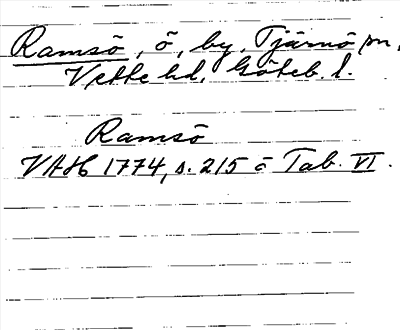 Ramsö, ö, by, Tjärnö sn,
Vette hd, Göteb. l.
Ramsö
VAH 1774, s. 215 o Tab. VI.